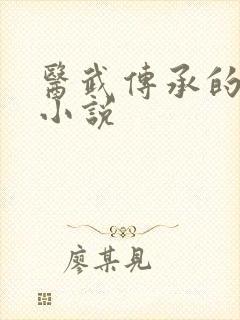 醫武傳承的
小說
廖某見